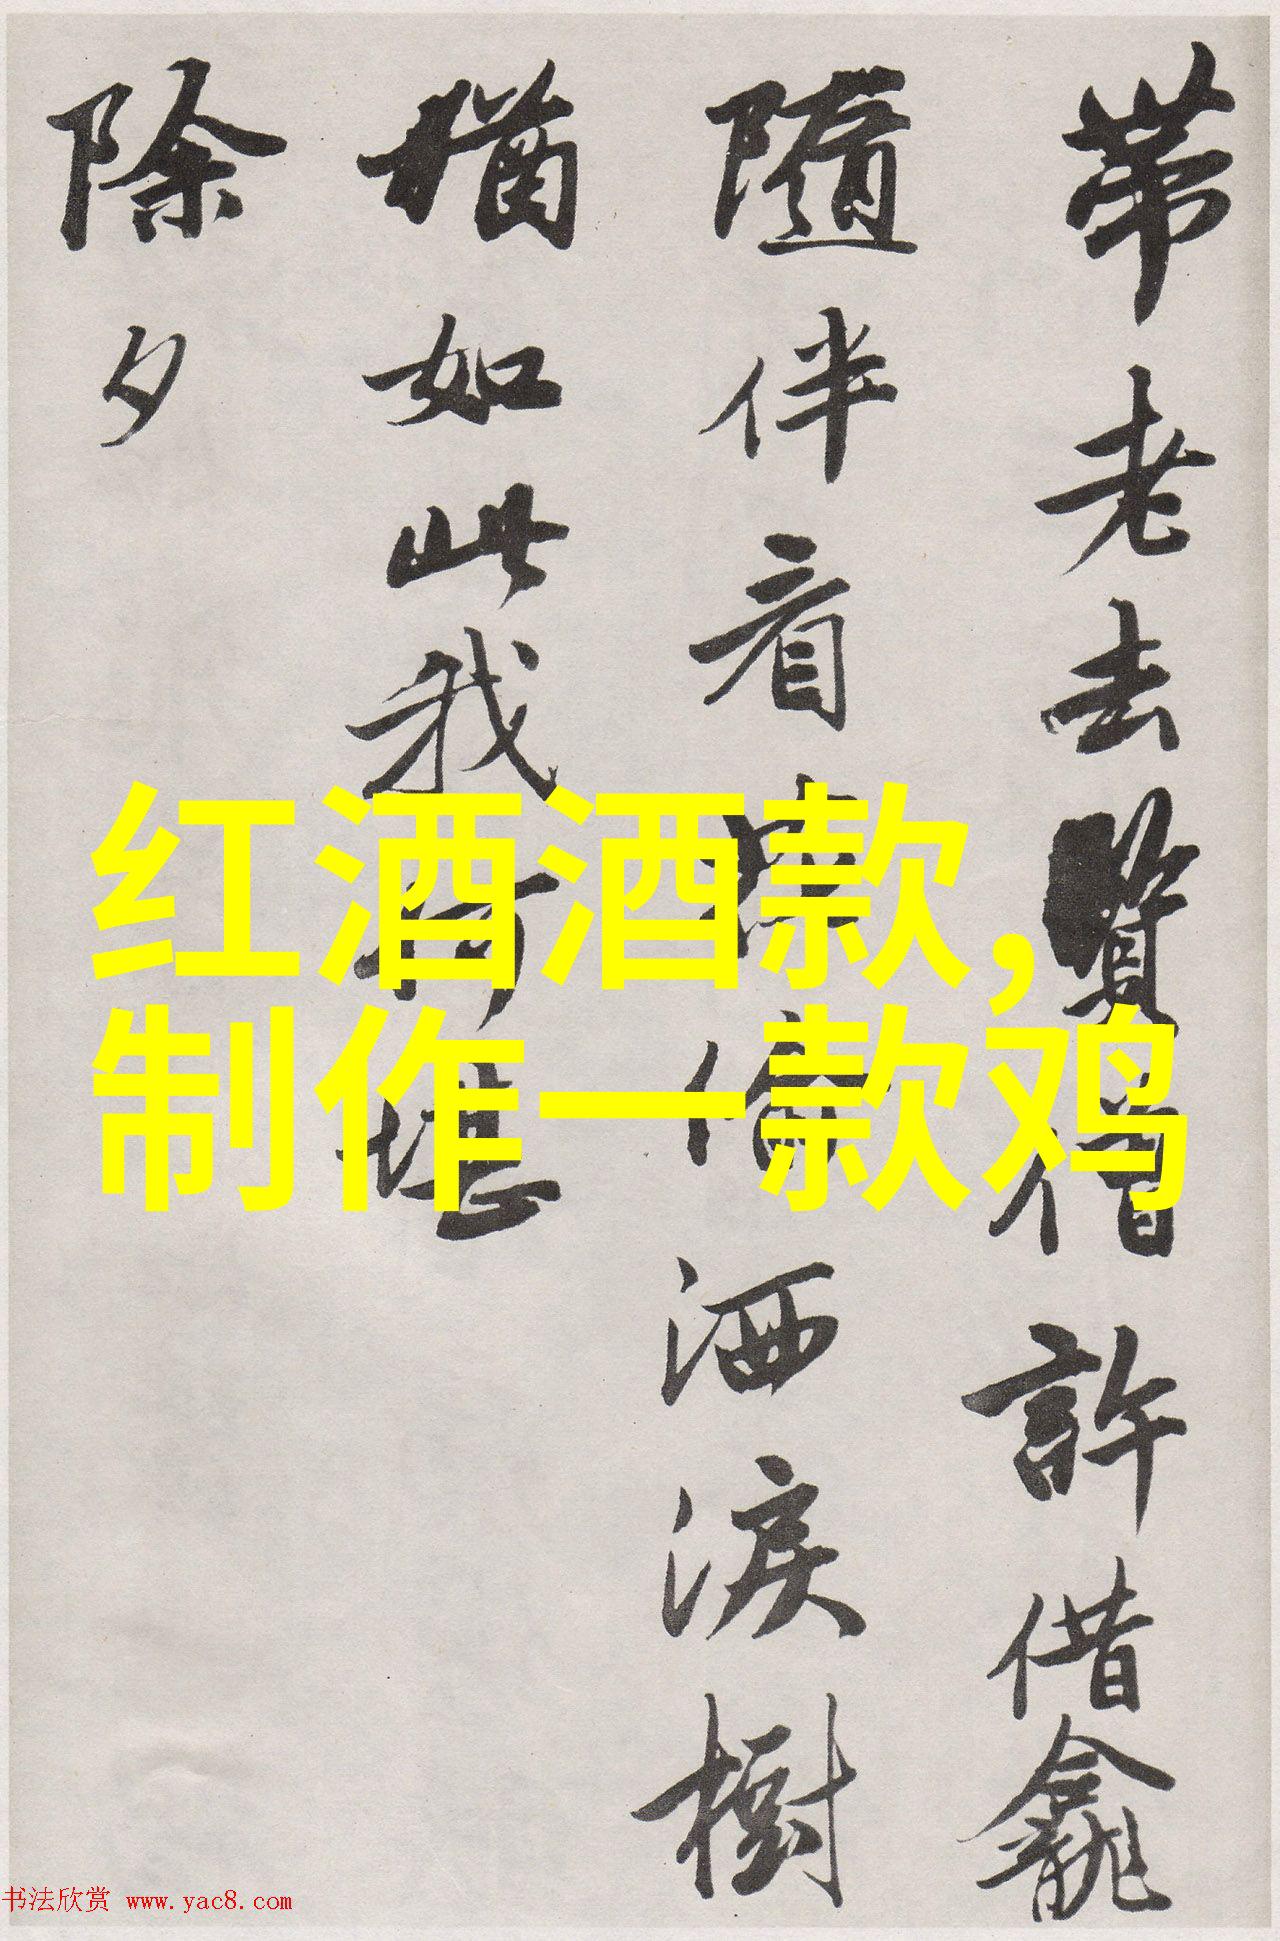 帶老去僧許借龕
隨伴看偷洒淚樹
猶如此我何堪
除夕
红酒酒款,
制作一款鸡
书法欣赏 www.yac8.com